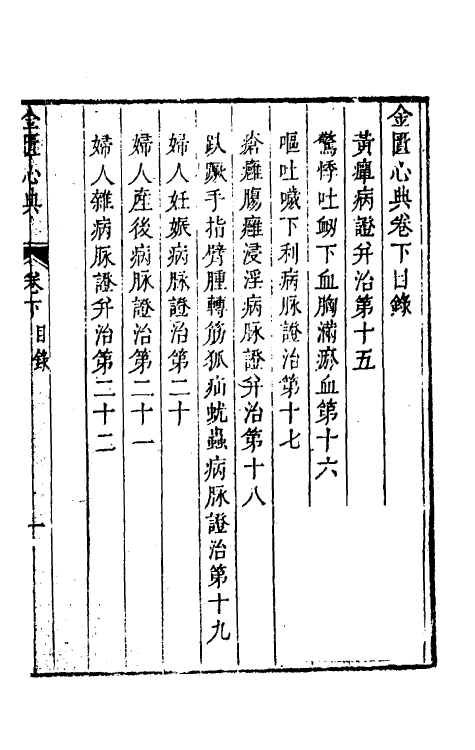 金匱心典卷下目錄
黃癉病證幷治第十五
驚悸吐衂下血胸滿瘀血第十六
嘔吐噦下利病脉證治第十七
瘡癰腸癰浸淫病脉證幷治第十八
趺蹶手指臂腫轉筋狐疝蚘蟲病脉證治第十九
婦人妊娠病脉證治第二十
婦人產後病脉證治第二十一
婦人雜病脉證幷治第二十二
金匱心典
卷下 目錄
一